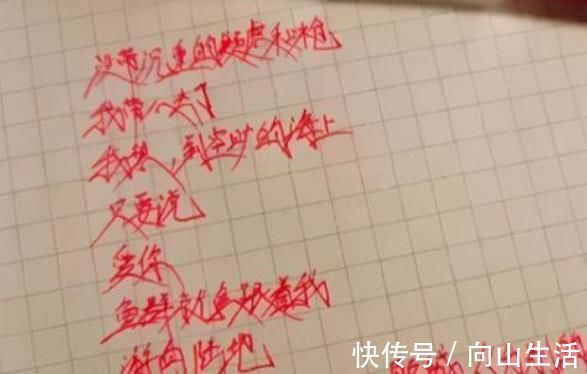 没带沉重的疑虑和枪
我带心去了
我想，到空旷的海上
只要说
爱你
鱼群就会跟着我
游向陆地
快传号 / 向山生活